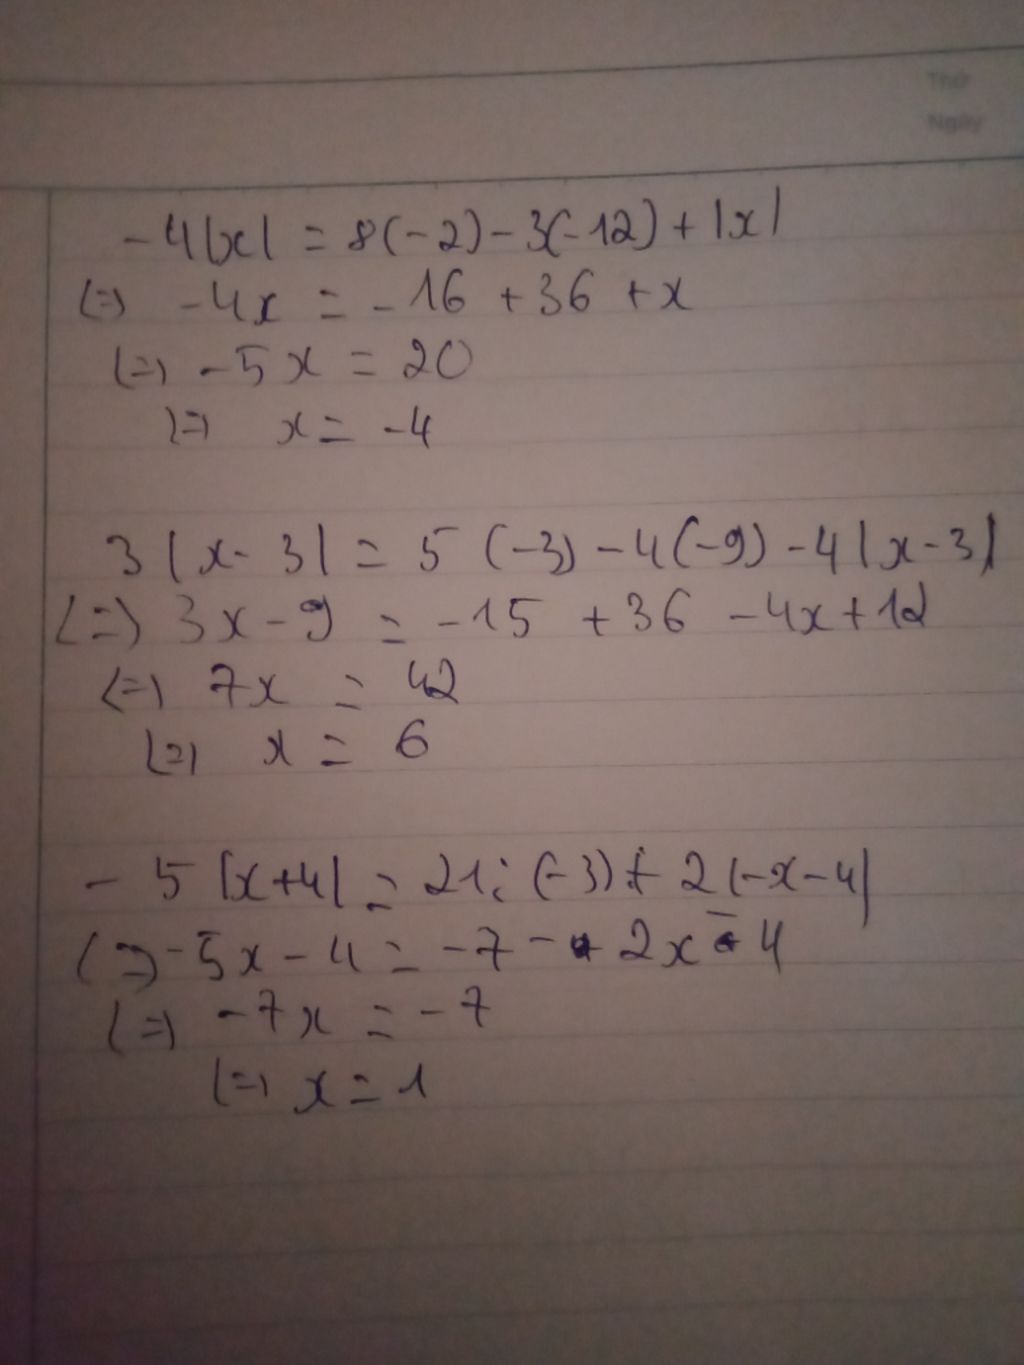 Thứ
Ngày
-4|x| = 8(-2)-3(-12)+|x|
(=) -4x = -16 +36 +x
(=) -5x = 20
(=) x= -4
3|x-3| = 5(-3)-4(-9)-4|x-3|
(=) 3x-9 = -15 +36 -4x+12
(=) 7x = 42
(=) x = 6
-5|x+4| = 21:(-3)+2|-x-4|
(=) -5x-4 = -7 - 2x-4
(=) -7x = -7
(=) x=1